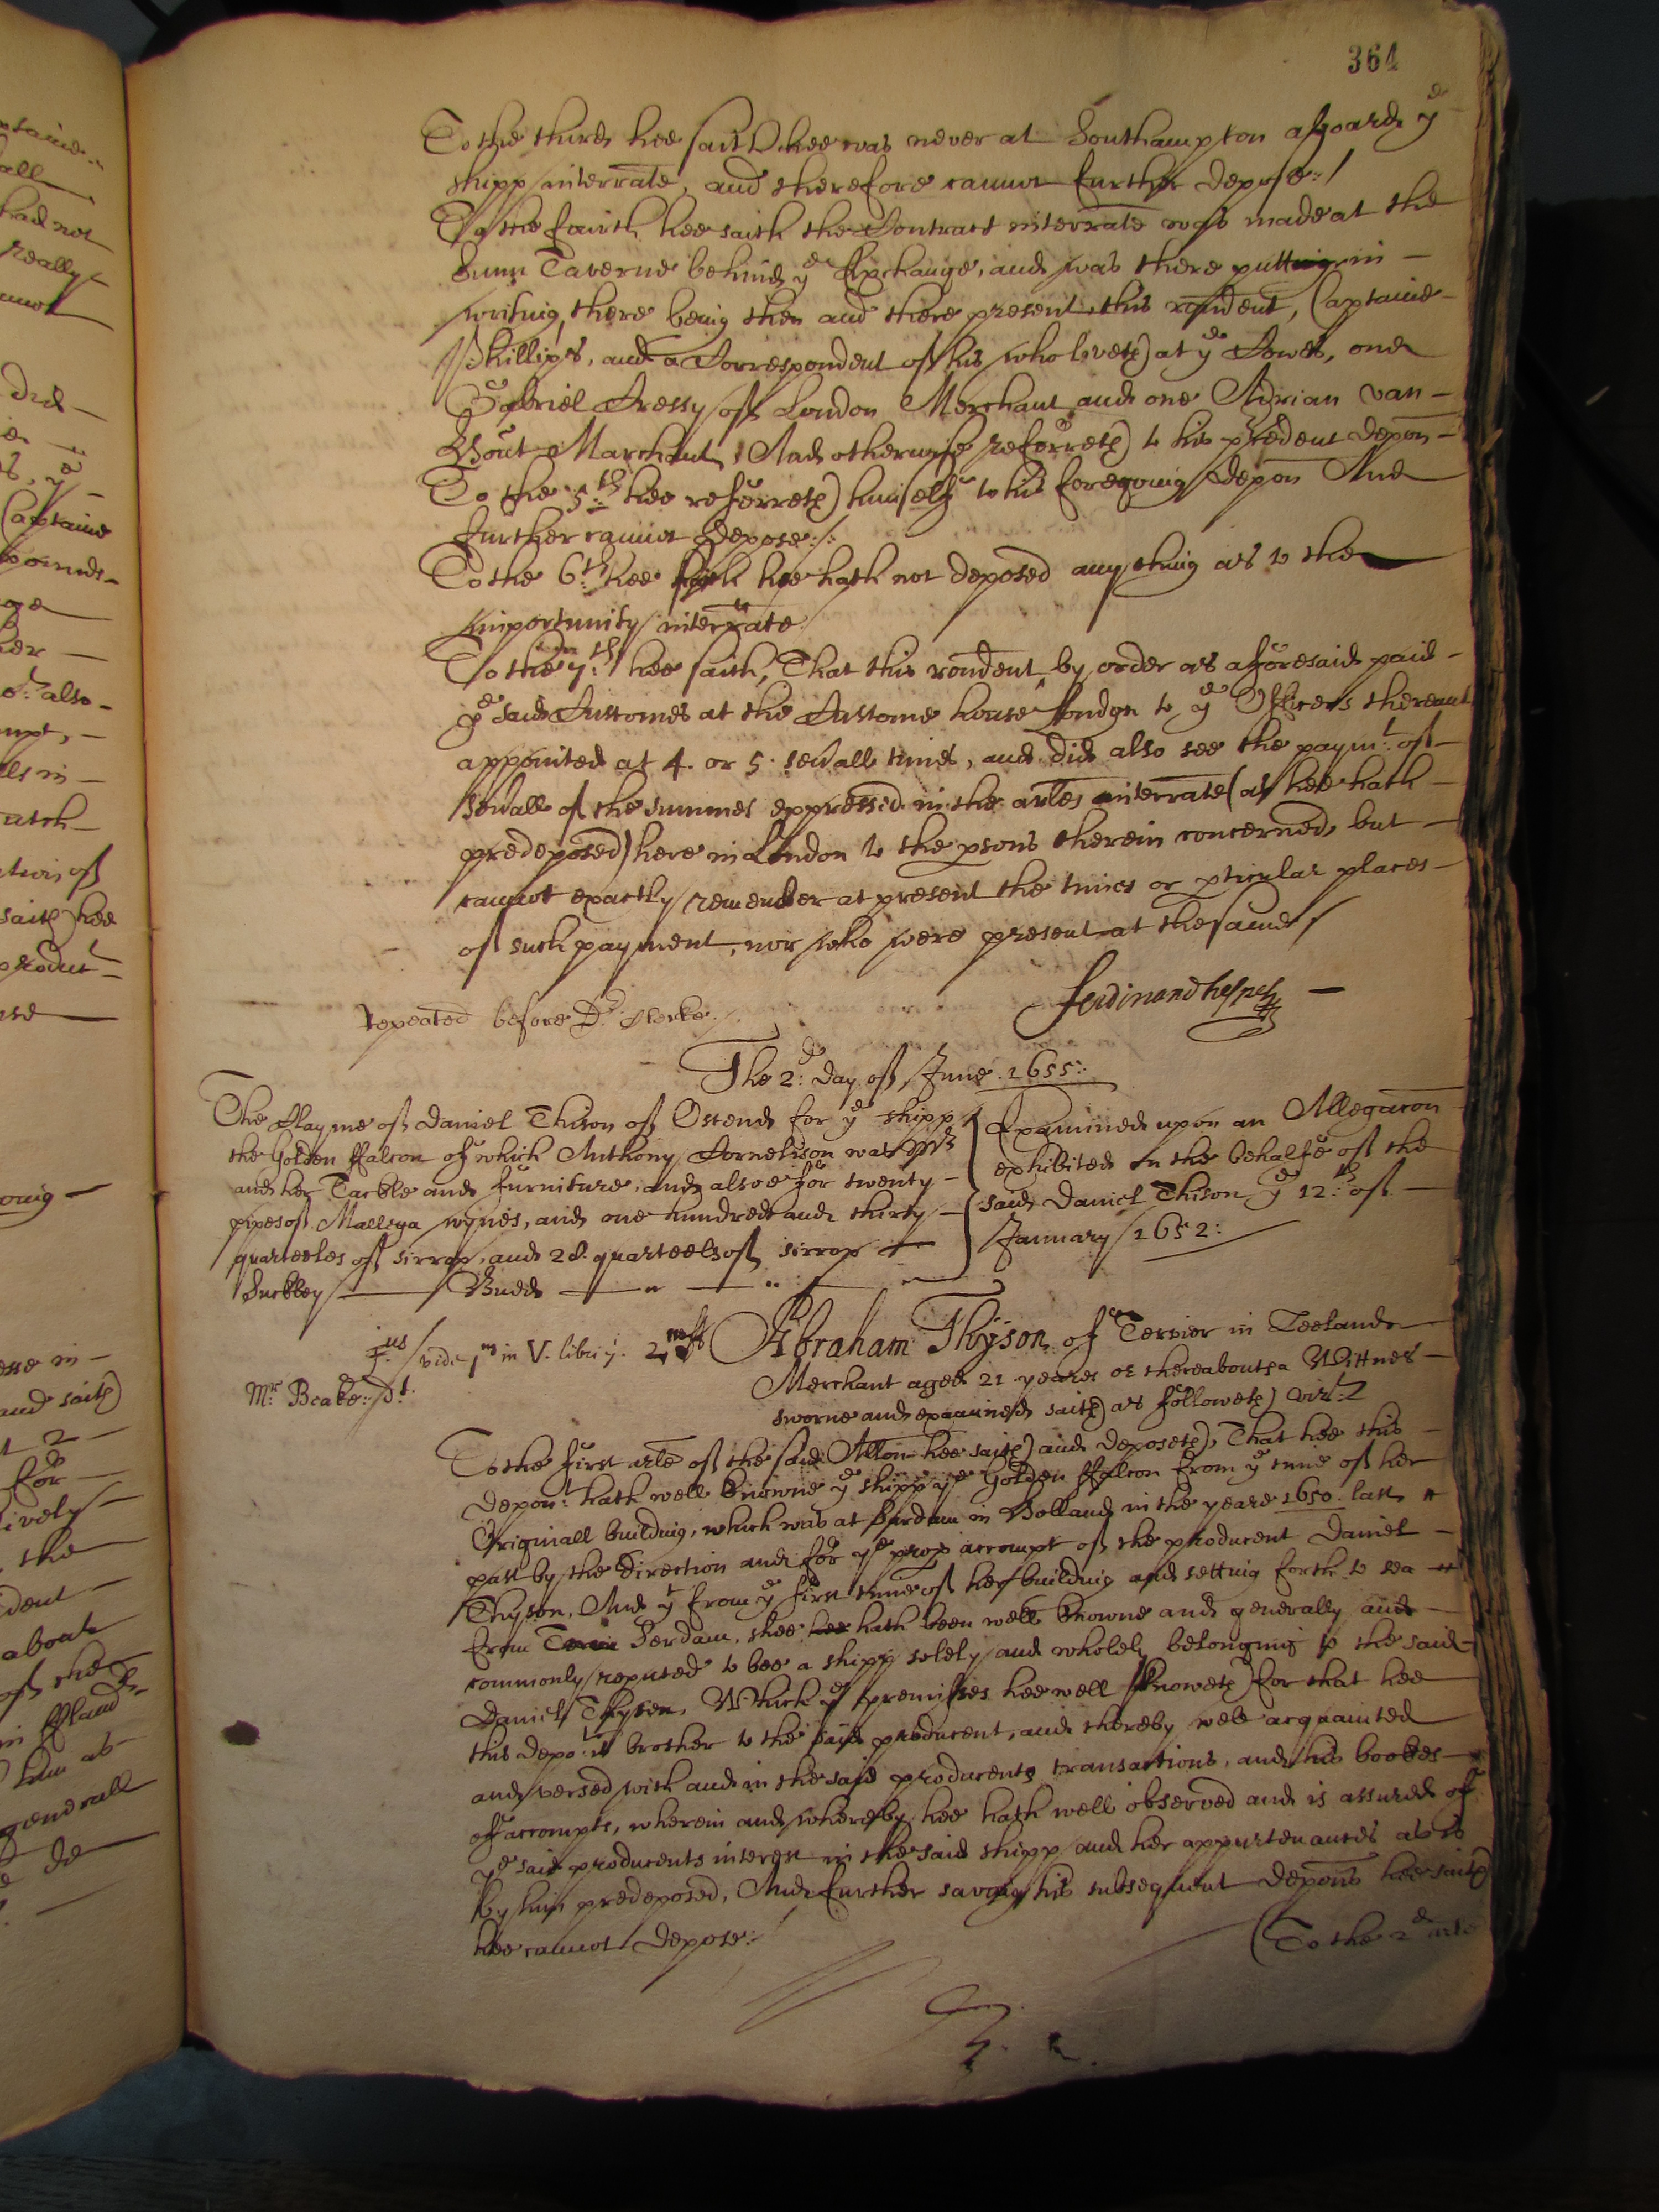 364
To the third hee saith hee was never at Southampton aboard ye
shipp interrate, and therefore cannot further depose:/
To the fourth hee saith the Contract interrate was made at the
Sunn Taverne behind ye Exchange, and was there putt in
writing, there being then and there present this rondent, Captaine
Phillips, and a Correspondent of his who liveth at ye Cowes, one
Gabriel Cressy of London Merchant and one Adrian van
Marchant, And otherwise referreth to his precedent depon
To the 5:th hee referreth himselfe to his foregoing depon And
further cannot depose:/:
To the 6:th hee saith hee hath not deposed any thing as to the
importunity interrate
To the 7:th hee saith, That this rondent by order as aforesaid paid
ye said Customes at the Custome house London to ye Officers thereunto
appointed at 4. or 5. severall times, and did also see the paymt. of
severall of the summes expressed in the arles interrate (as hee hath
predeposed) here in London to the psons therein concerned, but
cannot exactly remember at present the times or pticular places
of such payment, nor who were present at the same/
Repeated before Dr. Clerke./
ferdinand
The 2:d day of June 1655:
The Clayme of Daniel Thison of Ostend for ye shipp
the Golden ffalcon of which Anthony Cornelison was Mr
and her Tackle and furniture, and alsoe for twenty
pipes of Mallega wynes, and one hundred and thirty
quarteeles of sirrop, and 28. quarteels of sirrop
Suckley Budd
Examined upon an Allegacon
exhibited on the behalfe of the
said Daniel Thison ye 12:th of
January 1652:
vide 1m in V. libri
Mr. Beake: dt.
Abraham Thyson of Tervier in Zeeland
Merchant aged 21 yeares or thereabouts a Wittnes
sworne and examined saith as followeth vizt:
To the first arle of the said Allon hee saith and deposeth, That hee this
depont: hath well knowne ye shipp ye Golden ffalcon from ye time of her
Originall building, which was at Sardam in Holland in the yeare 1650. last
past by the direction and for ye prop accompt of the producent Daniel
Thyson, And yt from ye first time of her building and setting forth to sea
from Serdam, shee hath been well knowne and generally and
commonly reputed to bee a shipp solely and wholely belonging to the said
Daniel Thyson, Which ye premisses hee well knoweth for that hee
this depot is brother to the said producent, and thereby well acquainted
and versed with and in the said producents transactions, and his bookes
of accompts, wherein and whereby hee hath well observed and is assured of
ye said producents interest in the said shipp and her appurtenances as is
by him predeposed, And further saving his subsequent depons hee saith
hee cannot depose:/
To the 2d arle